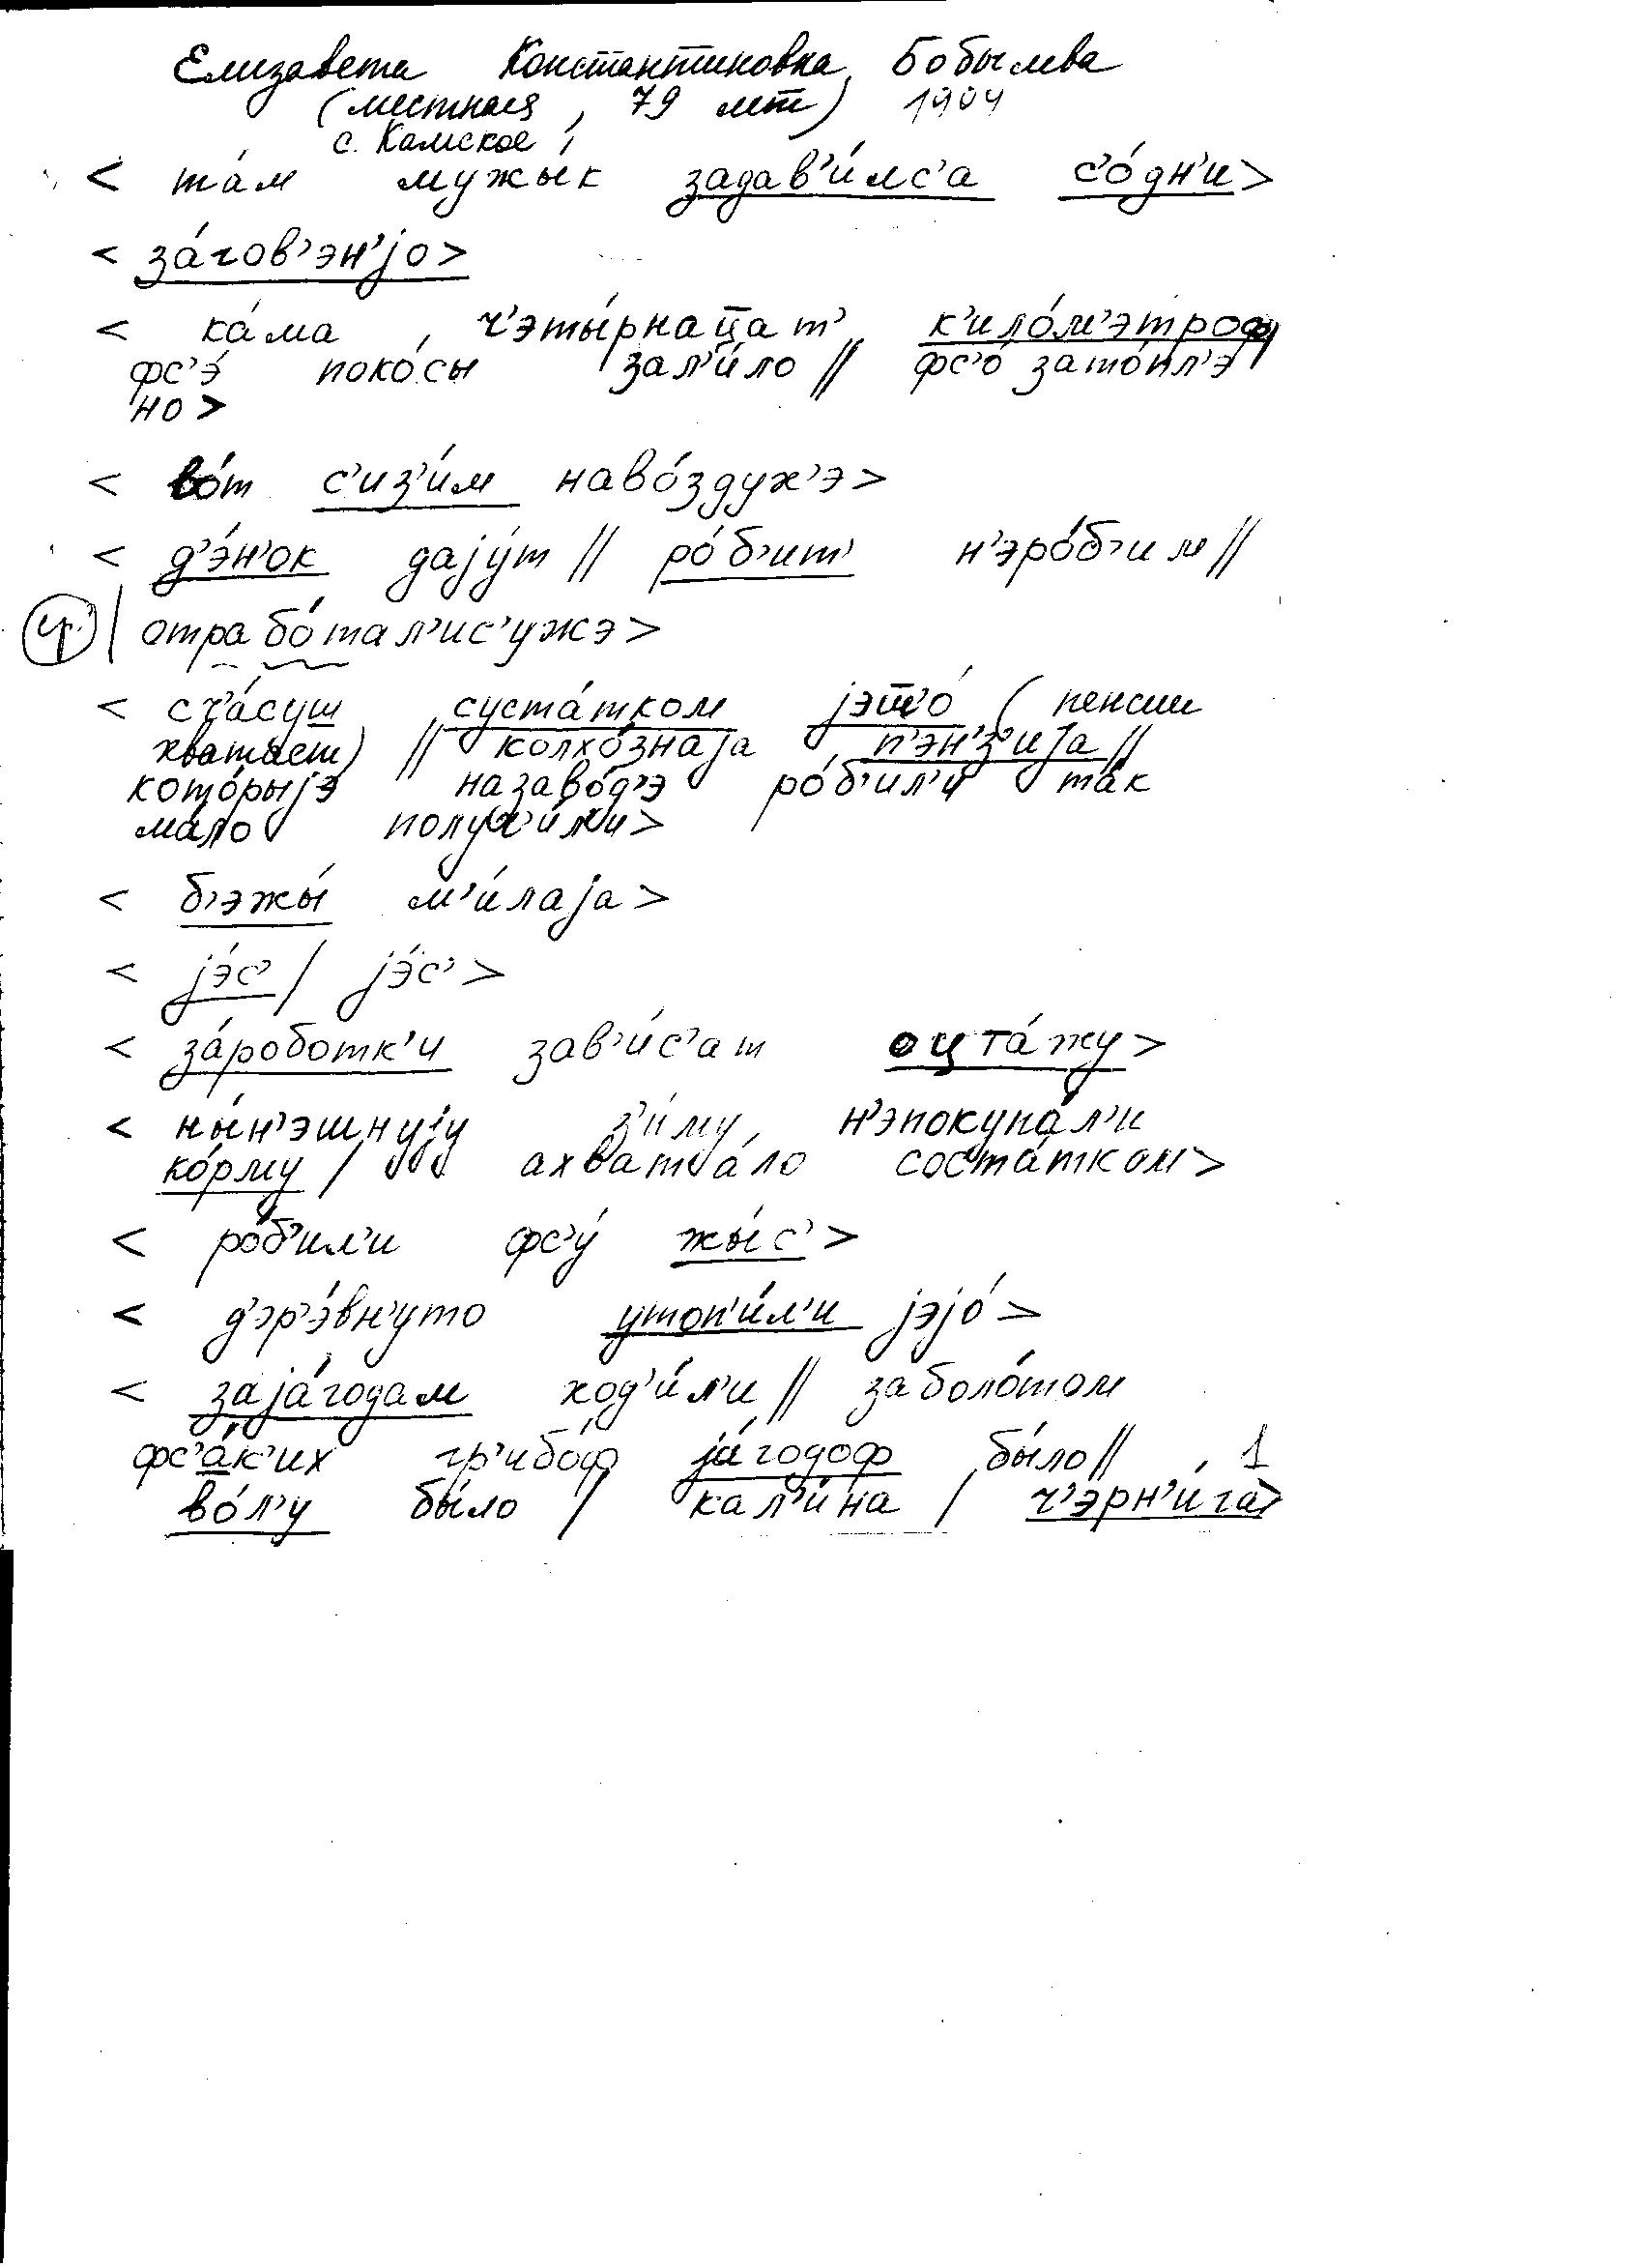 Елизавета Константиновна Бобылева
(местная, 79 лет) 1904
с. Камское
< та́м мужы́к задав'и́лс'а с'о́дн'и>
< за́гов'эн'jо>
< ка́ма, ч'эты́рнац̄ат' к'ило́м'этроф
фс'э́ поко́сы зал'и́ло // фс'о́ зато́пл'э
но>
< во́т с'из'и́м наво́здух'э>
< д'э́н'ок даjу́т // ро́б'ит' н'эро́б'им //
ср. | отрабо́тал'ис'ужэ>
< сч'а́суш суста́тком jэт̄'о́ (пенсии
хватает) // колхо́знаjа п'эн'з'иjа //
кото́рыjэ назаво́д'э ро́б'ил'и та́к
ма́ло получ'и́л'и>
< б'эжы́ м'и́лаjа>
< jэ́с' / jэ́с' >
< за́роботк'и зав'и́с'ат оцта́жу>
< ны́н'эшнуjу з'и́му н'эпокупа́л'и
ко́рму / ахвата́ло соста́тком>
< ро́б'ил'и фс'у́ жы́с' >
< д'эр'э́вн'уто утоп'и́л'и jэjо́ >
< заjа́годам ход'и́л'и // заболо́том
фс'а́к'их гр'ибо́ф jа́годоф бы́ло //
во́л'у бы́ло / кал'и́на / ч'эрн'и́га>